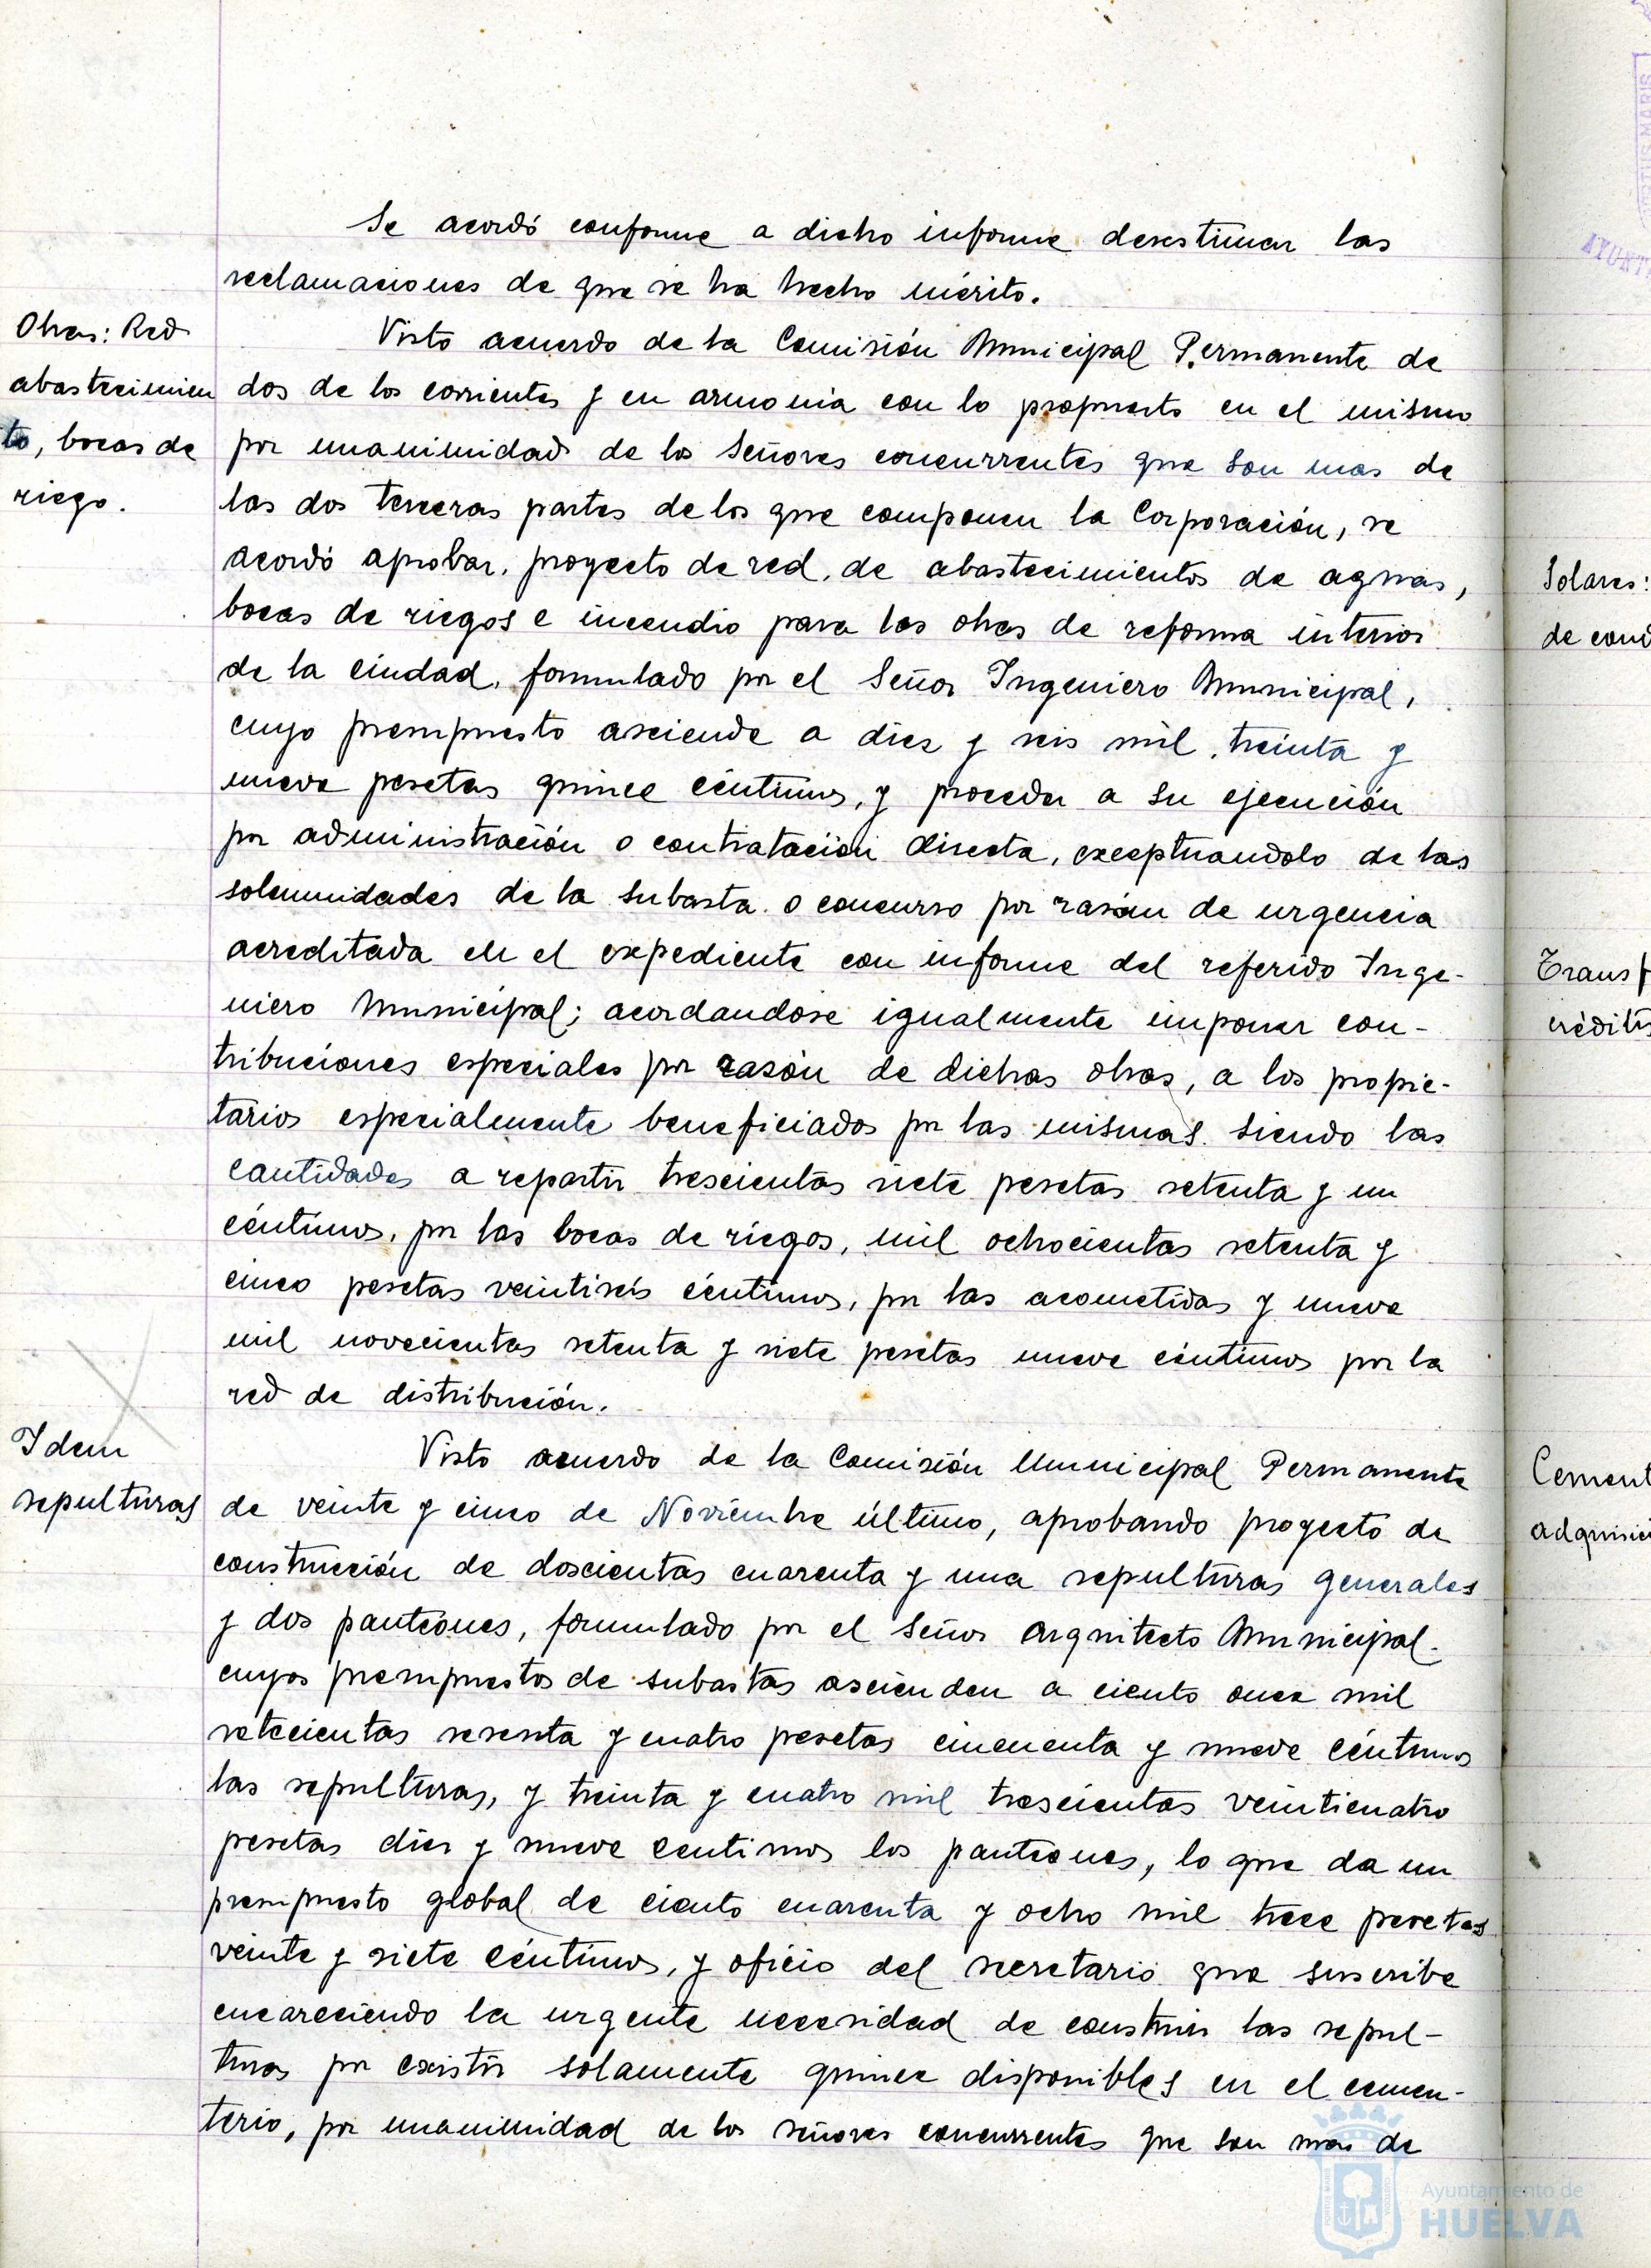 Se acordó conforme a dicho informe desestimar las
reclamaciones de que se ha hecho mérito.
Obras: Red
abastecimien
to, bocas de
riego.
Visto acuerdo de la Comisión Municipal Permanente de
dos de los corrientes y en armonia con lo propuesto en el mismo
por unanimidad de los Señores concurrentes que son mas de
las dos terceras partes de los que componen la Corporación, se
acordó aprobar, proyecto de red, de abastecimientos de aguas,
bocas de riegos e incendio para las obras de reforma interior
de la ciudad, formulado por el Señor Ingeniero Municipal,
cuyo presupuesto asciende a diez y seis mil, treinta y
nueve pesetas quince céntimos, y proceder a su ejecución
por administración o contratación directa, exceptuandolo de las
solemnidades de la subasta o concurso por razón de urgencia
acreditada en el expediente con informe del referido Inge-
niero Municipal; acordandose igualmente imponer con-
tribuciones especiales por razón de dichas obras, a los propie-
tarios especialmente beneficiados por las mismas siendo las
cantidades a repartir trescientas siete pesetas setenta y un
céntimos, por las bocas de riegos, mil ochocientas setenta y
cinco pesetas veintiseis céntimos, por las acometidas y nueve
mil novecientas setenta y siete pesetas nueve céntimos por la
red de distribución.
Idem
sepulturas
Visto acuerdo de la Comisión Municipal Permanente
de veinte y cinco de Noviembre último, aprobando proyecto de
construcción de doscientas cuarenta y una sepulturas generales
y dos panteones, formulado por el Señor Arquitecto Municipal
cuyos presupuestos de subastas ascienden a ciento once mil
setecientas sesenta y cuatro pesetas cincuenta y nueve céntimos
las sepulturas, y treinta y cuatro mil trescientas veinticuatro
pesetas diez y nueve centimos los panteones, lo que da un
presupuesto global de ciento cuarenta y ocho mil trece pesetas
veinte y siete céntimos, y oficio del secretario que suscribe
encareciendo la urgente necesidad de construir las sepul-
turas por existir solamente quince disponibles en el cemen-
terio, por unanimidad de los señores concurrentes que son mas de
Solares:
de cond
Transf
crédito
Cement
adquisici
AYUNT
Ayuntamiento de
HUELVA